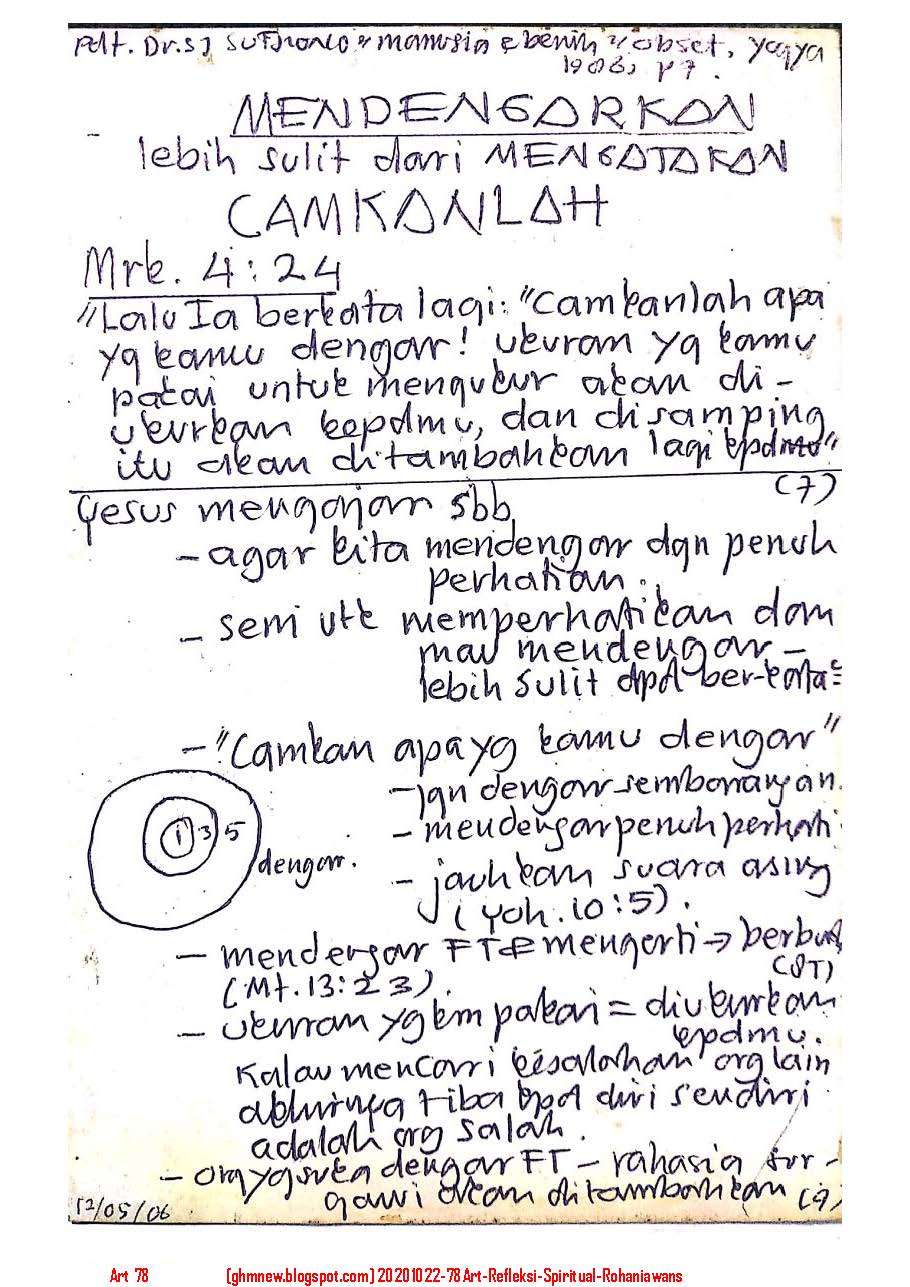 Pdt. Dr. SJ SUTJIONO "manusia & benih" obset, yogya
MENDENGARKAN
lebih sulit dari MENGATAKAN
CAMKANLAH
Mrk. 4:24
"Lalu Ia berkata lagi: "Camkanlah apa
yg kamu dengar! ukuran yg kamu
pakai untuk mengukur akan di-
ukurkan kepdmu, dan disamping
itu akan ditambahkan lagi kpdmu"
(7)
Yesus mengajar sbb
- agar kita mendengar dgn penuh
perhatian.
- seni utk memperhatikan dan
mau mendengar -
lebih sulit dpd ber-kata²
- "Camkan apa yg kamu dengar"
- jgn dengar sembarangan.
- mendengar penuh perhati
1 3 5
dengar.
- jauhkan suara asing
(Yoh. 10:5).
- mendengar FT & mengerti → berbuat
(Mt. 13:23).
- ukuran yg km pakai = diukurkan
kpdmu.
Kalau mencari kesalahan org lain
akhirnya tiba kpd diri sendiri
adalah org salah.
- org yg suka dengar FT - rahasia sur-
gawi akan ditambahkan (9)
12/05/06
Art 78 [ghmnew.blogspot.com] 20201022-78 Art-Refleksi-Spiritual-Rohaniawans